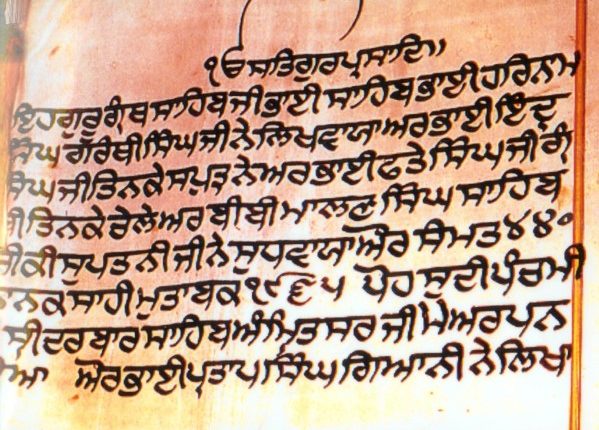 ੴ ਸਤਿਗੁਰਪ੍ਰਸਾਦਿ॥
ਇਹ ਗੁਰੂ ਗ੍ਰੰਥ ਸਾਹਿਬ ਜੀ ਭਾਈ ਸਾਹਿਬ ਭਾਈ ਹਰਿਨਾਮ
ਸਿੰਘ ਗਰੀਬੀ ਸਿੰਘ ਜੀ ਨੇ ਲਿਖਵਾਯਾ ਅਰ ਭਾਈ ਇੰਦ੍ਰ
ਸਿੰਘ ਜੀ ਤਿਨਕੇ ਸਪੁਤ੍ਰ ਨੇ ਅਰ ਭਾਈ ਫਤੇ ਸਿੰਘ ਜੀ
ਤਿਨਕੇ ਚੇਲੇ ਅਰ ਬੀਬੀ ਮਾਲਣ ਸਿੰਘ ਸਾਹਿਬ
ਜੀ ਕੀ ਸੁਪਤਨੀ ਜੀ ਨੇ ਸੁਧਵਾਯਾ ਔਰ ਸੰਮਤ ੪੪੦
ਨਾਨਕ ਸਾਹੀ ਮੁਤਾਬਕ ੧੯੬੫ ਪੋਹ ਸੁਦੀ ਪੰਚਮੀ
ਸ੍ਰੀ ਦਰਬਾਰ ਸਾਹਿਬ ਅੰਮ੍ਰਿਤਸਰ ਜੀ ਮੇ ਅਰਪਨ
ਔਰ ਭਾਈ ਪ੍ਰਤਾਪ ਸਿੰਘ ਗਿਆਨੀ ਨੇ ਲਿਖਾ